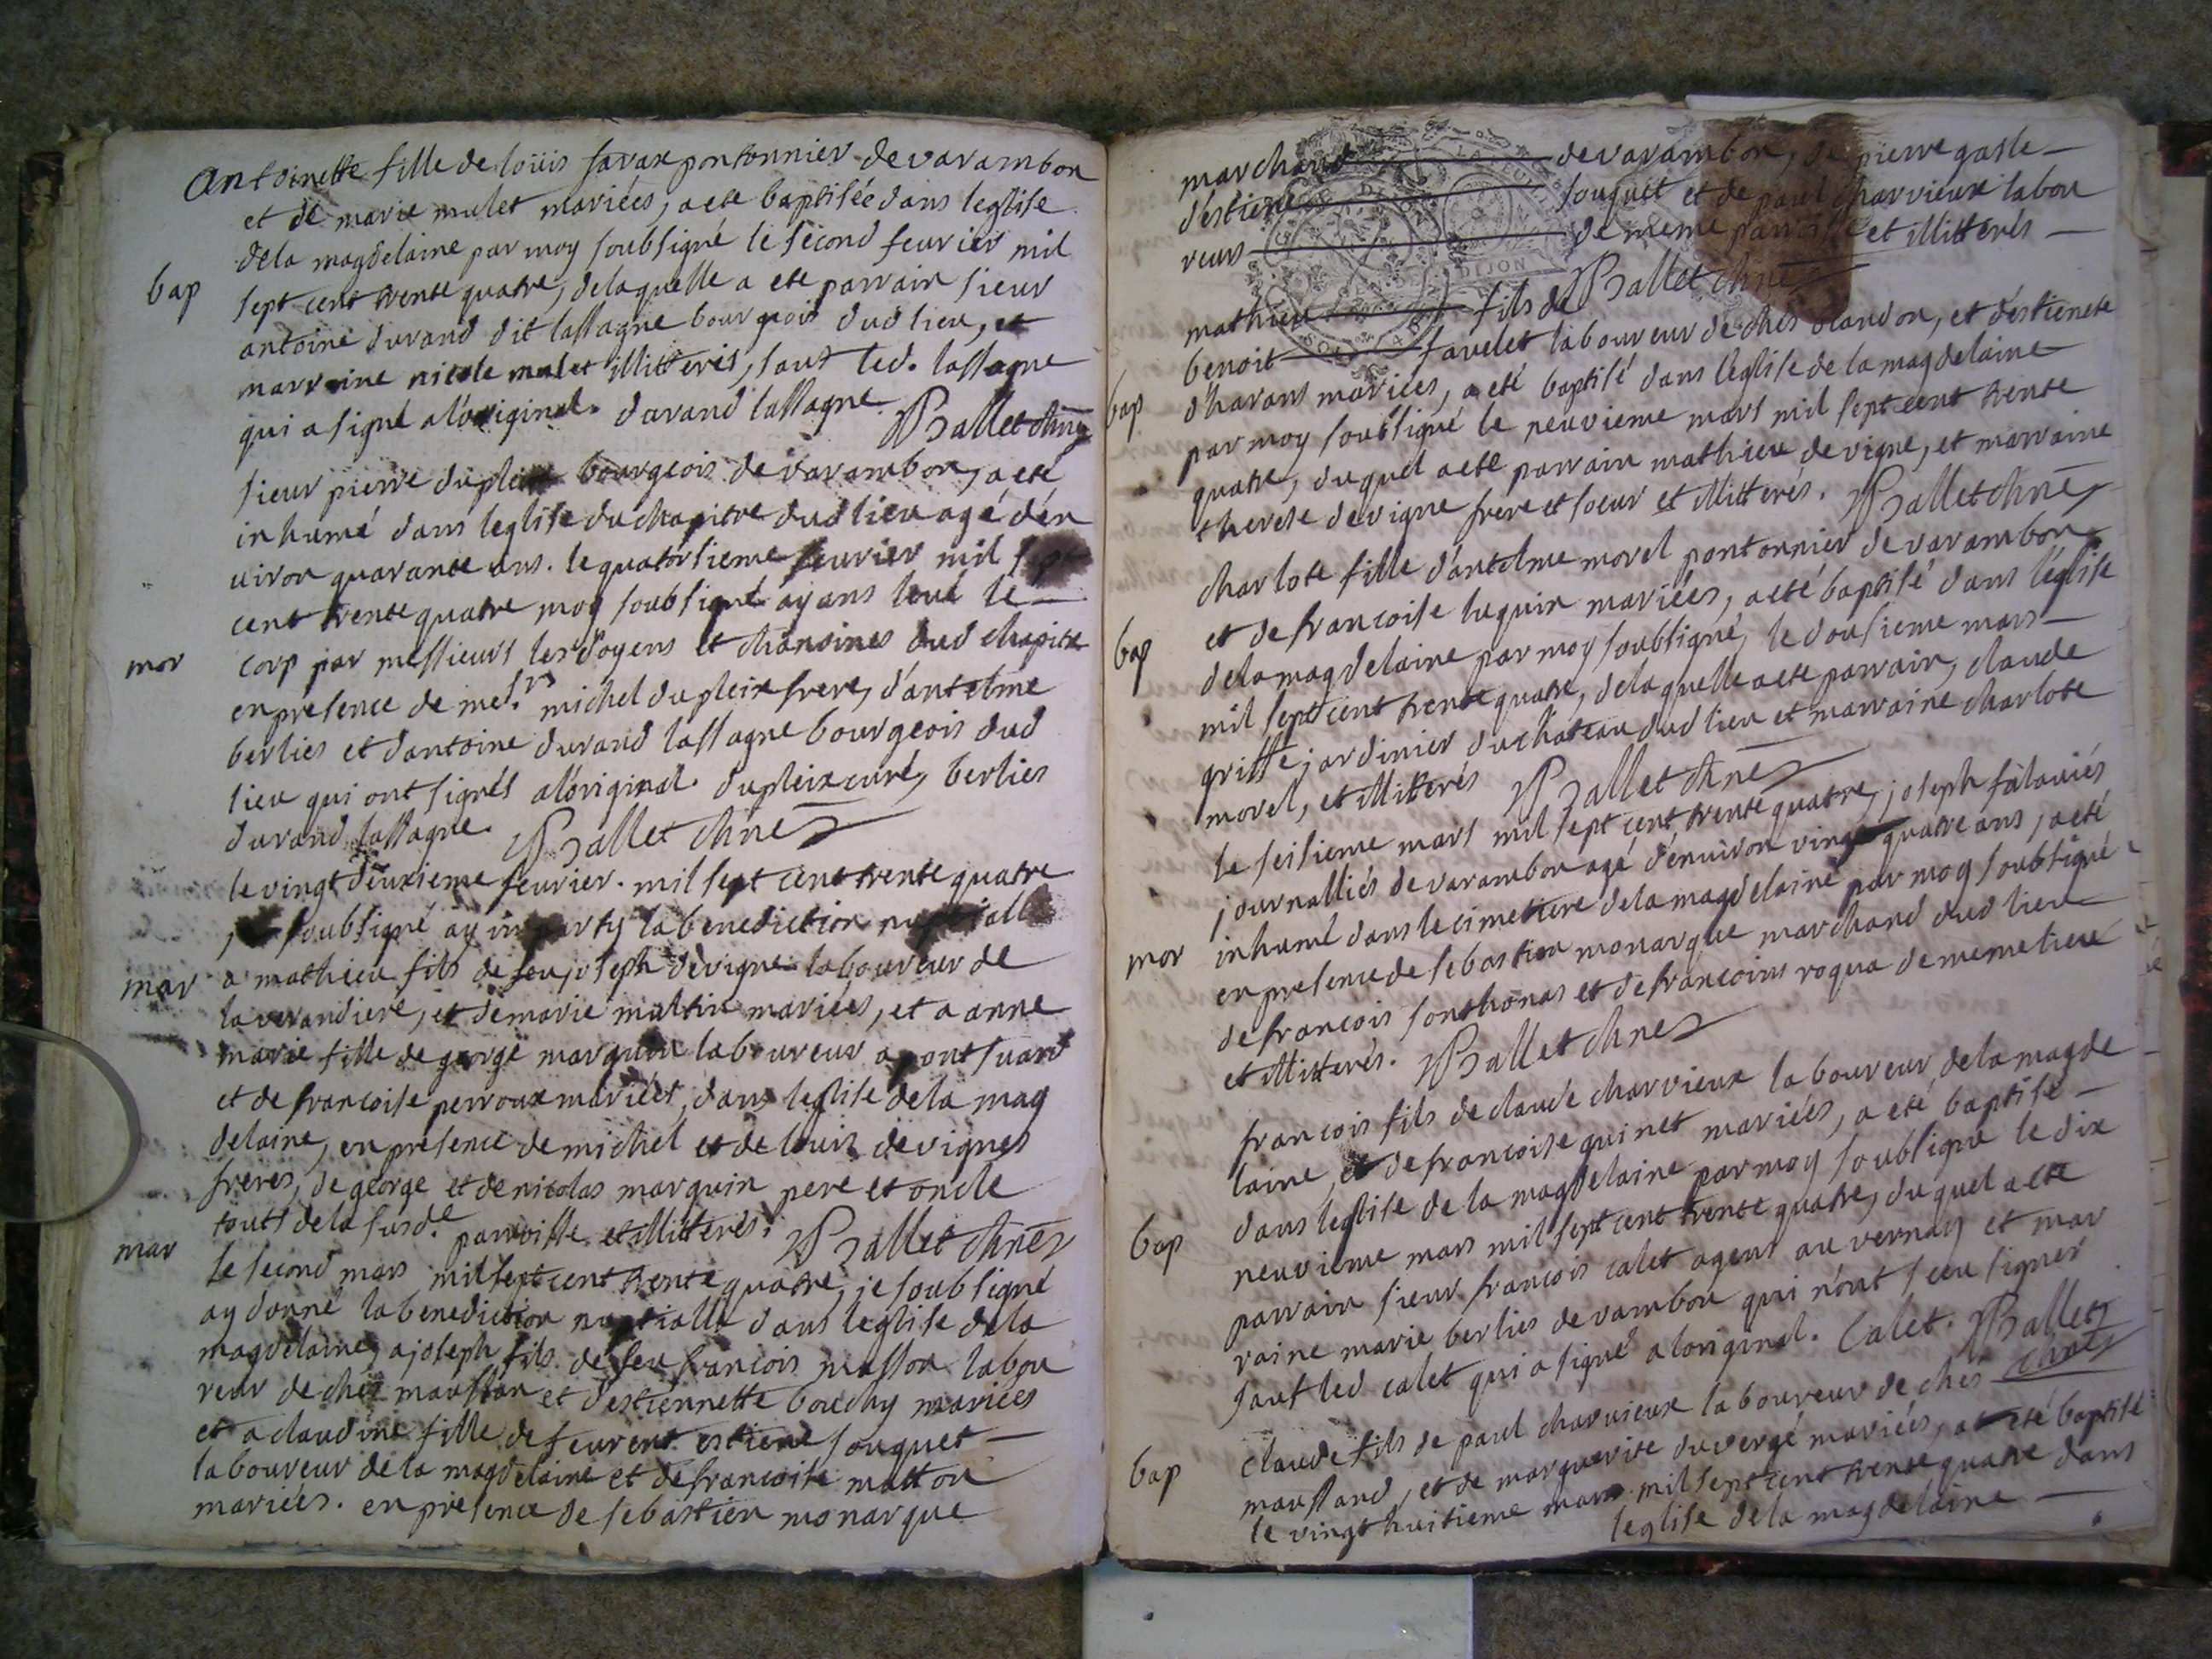 antoinette fille de loüis favax pontonnier de varambon
et de marie mulet mariées, a eté baptisée dans leglise
dela magdelaine par moy soubsigné le second feurier mil
bap
sept cent trente quatre, delaquelle a eté parrain sieur
antoine durand dit lassagne bourgeois dud lieu, et
marraine nicole mulet illitterés, sauf led. lassagne
qui a signé a l'original. durand lassagne Ballet chne
sieur pierre dupleix bourgeois de varambon, a eté
inhumé dans leglise du chapitre dud lieu agé d'en
uiron quarante ans. le quatorsieme feurier mil sept
cent trente quatre moy soubsigné ayans leué le
mor
corp par messieurs les doyens et chanoines dud chapitre
en presence de mes.rs michel dupleix frere, d'antelme
berlies et d'antoine durand lassagne bourgeois dud
lieu qui ont signés a l'original. dupleix curé, berlies
durand lassagne. Ballet chne
le vingt deuxieme feurier. mil sept cent trente quatre
je soubsigné ay imparty la benediction nuptialle
mar
a mathieu fils de feu joseph devigne laboureur de
laverandiere, et de marie multin mariées, et a anne
marie fille de george marquin laboureur a pont suard
et de francoise perroux mariées, dans leglise dela mag
delaine, en presence de michel et de louis devignes
freres, de george et de nicolas marquin pere et oncle
touts de la susd.e parroisse et illitterés. Ballet chne
mar
le second mars mil sept cent trente quatre, je soubsigné
ay donné la benediction nuptialle dans leglise dela
magdelaine, a joseph fils de feu francois masson labou
reur de chés maussan et d'estiennette bouchy mariées
et a claudine fille de feu rent estiene fouquet
laboureur de la magdelaine et de francoise matton
mariées. en presence de sebastien monarque
marchand de varambon, de pierre gasle
d'estiene fouquet et de paul charvieux labou
reurs de meme parroisse et illitterés
Ballet chne
mathieu fils de
benoit favelet laboureur de chés blandon, et d'estienete
bap
d'harans mariées, a eté baptisé dans l'eglise de la magdelaine
par moy soubsigné le neuvieme mars mil sept cent trente
quatre, duquel a eté parrain mathieu de vigne, et marraine
therese devigne frere et soeur et illitterés. Ballet chne
charlote fille d'antelme morel pontonnier de varambon
et de francoise luquin mariées, a eté baptisé dans l'eglise
bap
dela magdelaine par moy soubsigné, le dousieme mars
mil sept cent trente quatre, delaquelle a eté parrain, claude
griffe jardinier du chateau dud lieu et marraine charlote
morel, et illitterés Ballet chne
le seisieme mars mil sept cent trente quatre, joseph falauiés
journalliés de varambon agé d'enuiron vingt quatre ans, a eté
mor
inhumé dans le cimetiere dela magdelaine par moy soubsigné
en presence de sebastien monarque marchand dud lieu
de francois sonthonas et de francoins roqua de meme lieu
et illitterés. Ballet chne
francois fils de claude charvieux laboureur de la magde
laine, et de francoise quinet mariées, a eté baptisé
dans leglise de la magdelaine par moy soubsigné le dix
bap
neuvieme mars mil sept cent trente quatre, duquel a eté
parrain sieur francois calet agent au vernay et mar
raine marie berlies de vambon qui n'ont sceu signer
sauf led calet qui a signé a loriginal. Calet. Ballet
chne
bap
claude fils de paul charvieux laboureur de chés
maussand, et de marguerite duvergé mariées, a eté baptisé
le vingt huitieme mars mil sept cent trente quatre dans
leglise dela magdelaine